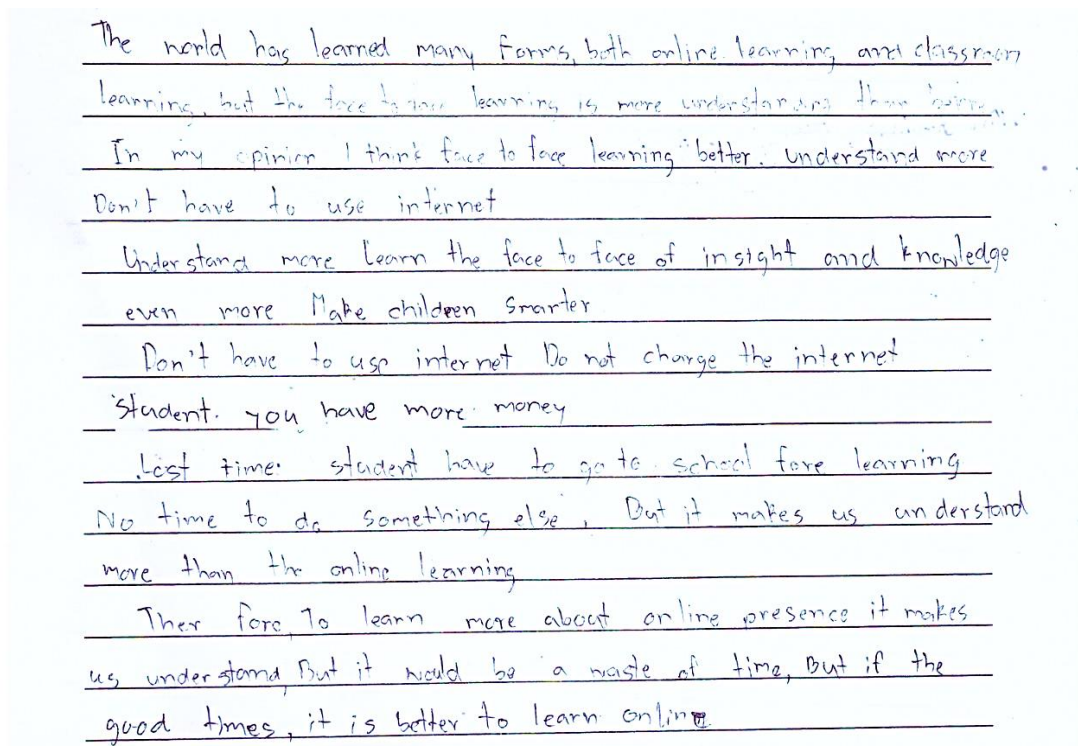 The world has learned many forms, both online learning and classroom
learning, but the face to face learning is more understanding than
In my opinion I think face to face learning better. understand more
Don't have to use internet
Understand more Learn the face to face of insight and knowledge
even more Make children smarter
Don't have to use internet Do not charge the internet
student. you have more money
Lost time. student have to go to school fore learning
No time to do something else, But it makes us understand
more than the online learning
Ther fore, To learn more about online presence it makes
us understand, But it would be a waste of time, But if the
good times, it is better to learn online